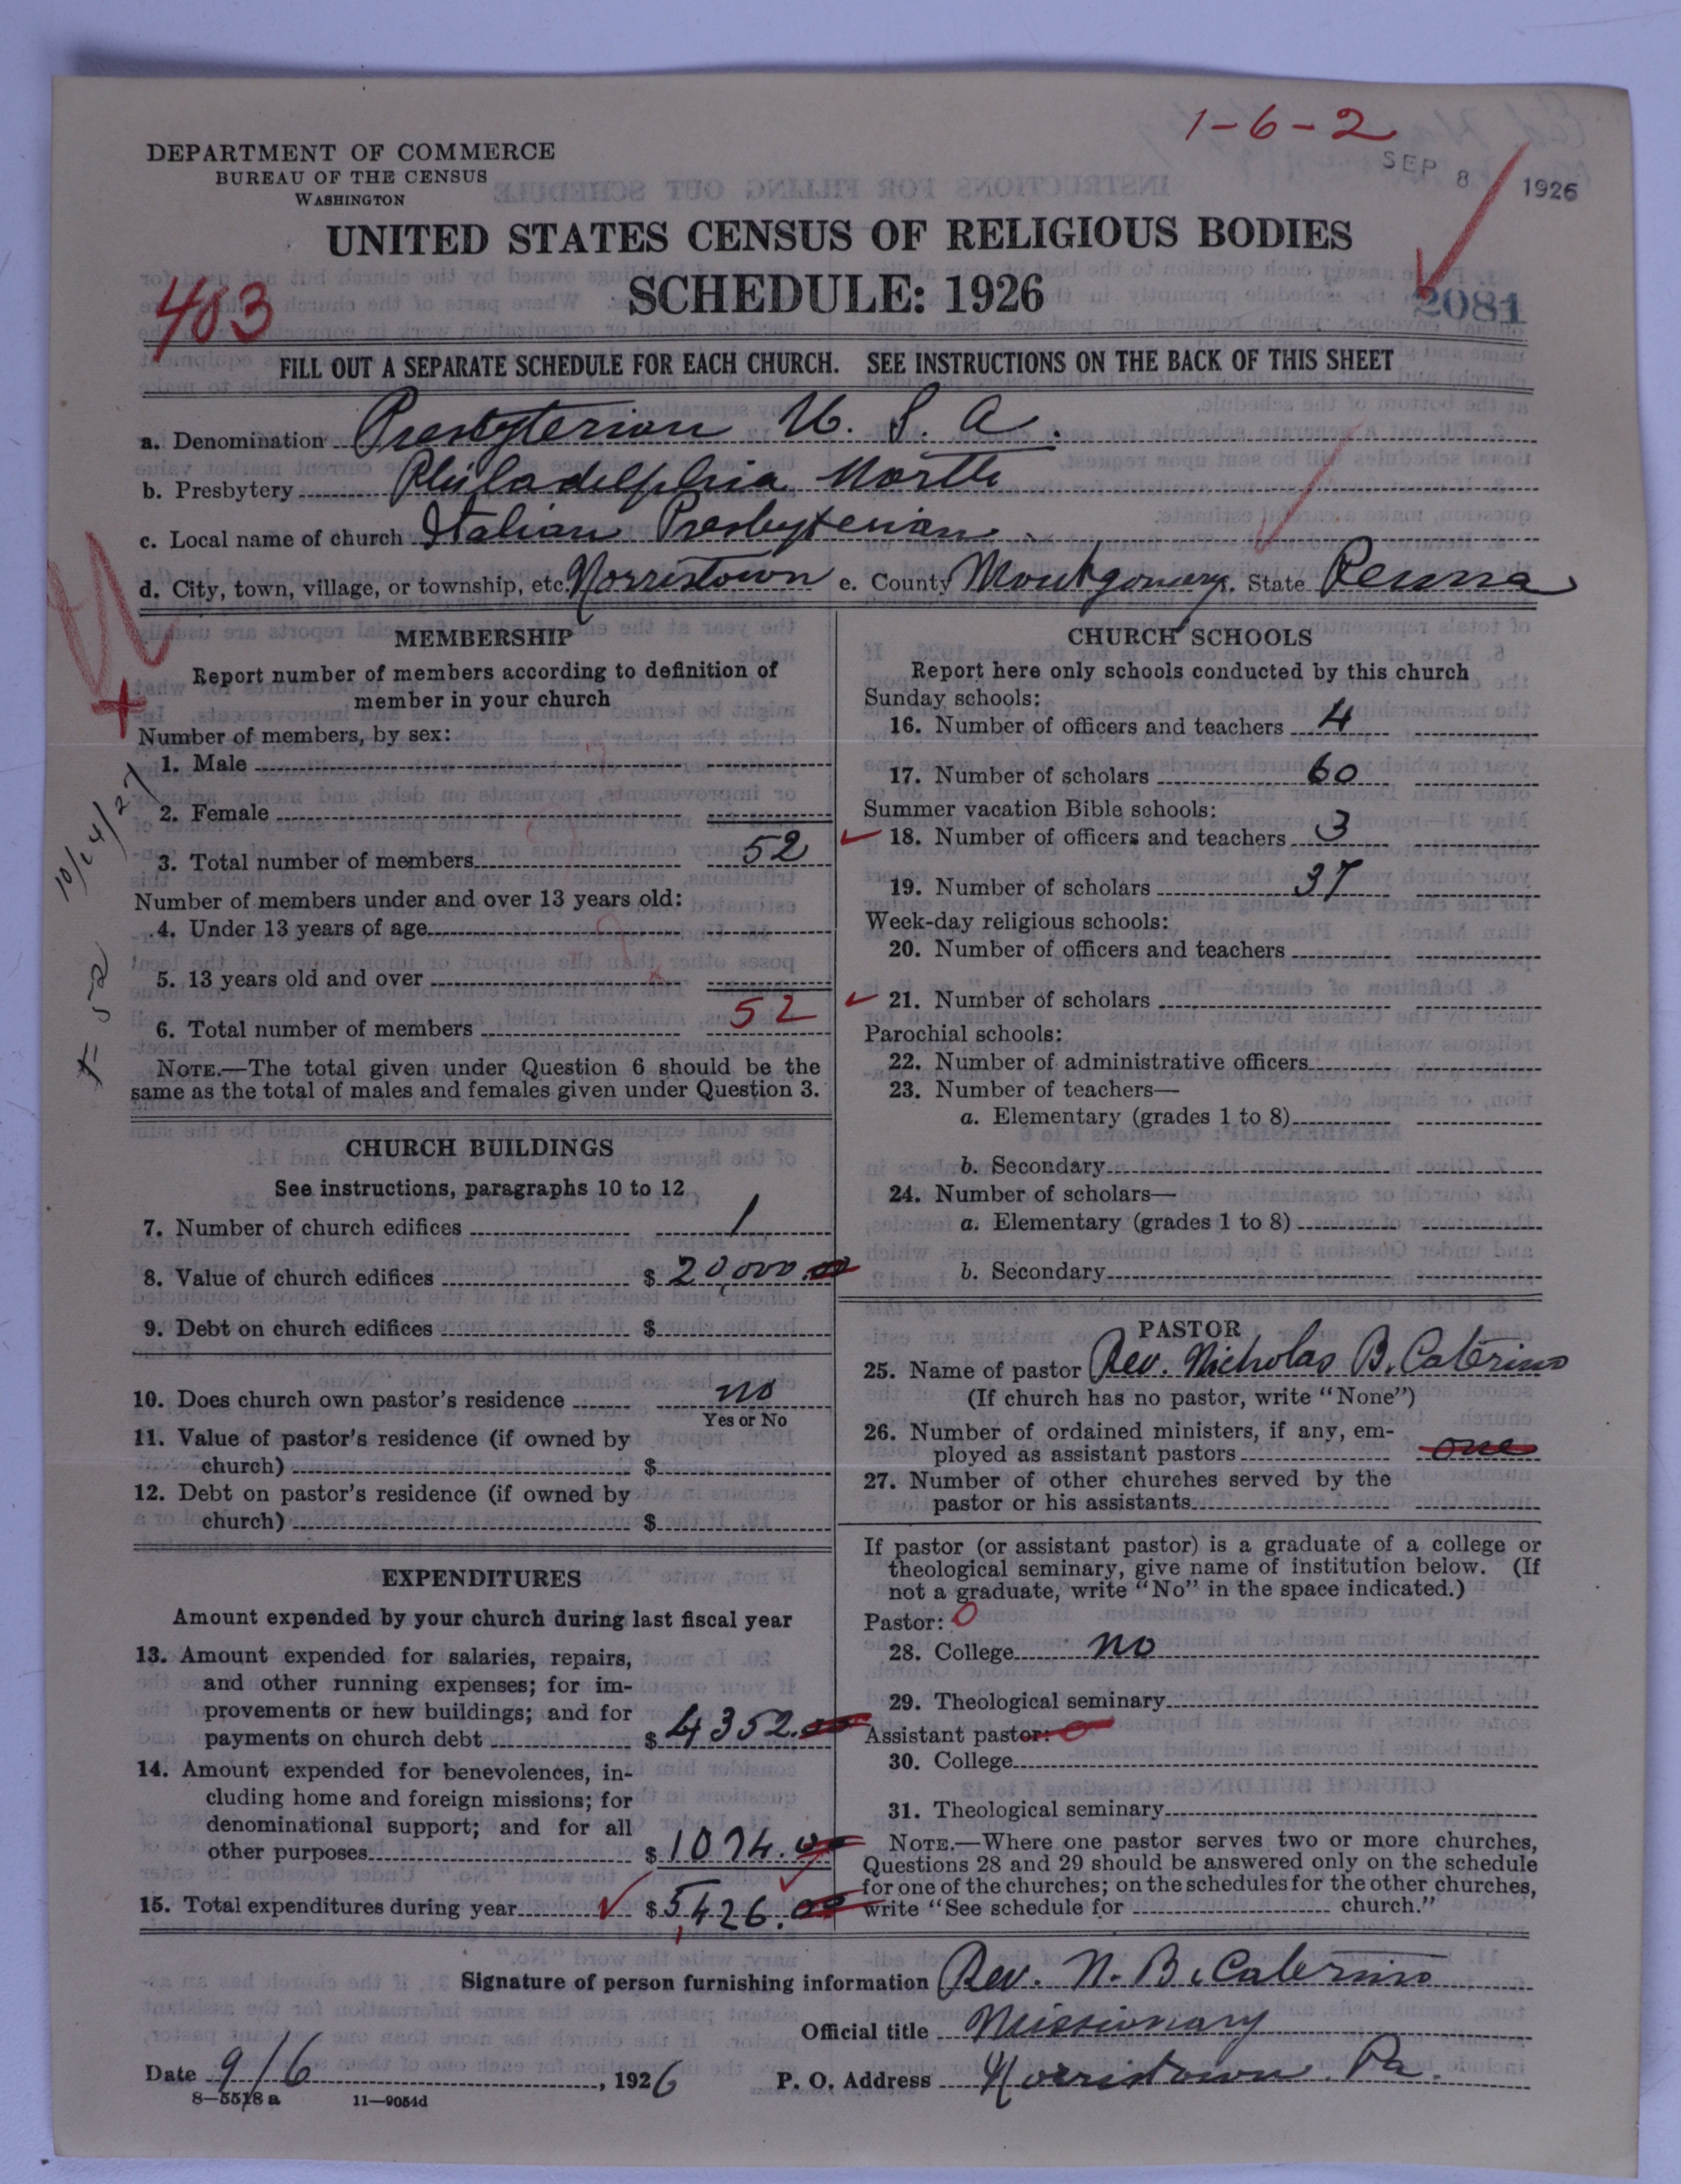 1-6-2
SEP 8 1926
DEPARTMENT OF COMMERCE
BUREAU OF THE CENSUS
WASHINGTON
UNITED STATES CENSUS OF RELIGIOUS BODIES
SCHEDULE: 1926
403
2081
FILL OUT A SEPARATE SCHEDULE FOR EACH CHURCH. SEE INSTRUCTIONS ON THE BACK OF THIS SHEET
a. Denomination Presbyterian U. S. A.
b. Presbytery Philadelphia North
c. Local name of church Italian Presbyterian
d. City, town, village, or township, etc. Norristown e. County Montgomery. State Penna
MEMBERSHIP
Report number of members according to definition of
member in your church
Number of members, by sex:
1. Male
2. Female
3. Total number of members 52
Number of members under and over 13 years old:
4. Under 13 years of age
5. 13 years old and over
6. Total number of members 52
NOTE.—The total given under Question 6 should be the
same as the total of males and females given under Question 3.
10/14/27
52
CHURCH BUILDINGS
See instructions, paragraphs 10 to 12
7. Number of church edifices 1
8. Value of church edifices $ 20,000.00
9. Debt on church edifices $
10. Does church own pastor's residence no
Yes or No
11. Value of pastor's residence (if owned by
church) $
12. Debt on pastor's residence (if owned by
church) $
EXPENDITURES
Amount expended by your church during last fiscal year
13. Amount expended for salaries, repairs,
and other running expenses; for im-
provements or new buildings; and for
payments on church debt $ 4352.00
14. Amount expended for benevolences, in-
cluding home and foreign missions; for
denominational support; and for all
other purposes $ 1074.00
15. Total expenditures during year $ 5,426.00
CHURCH SCHOOLS
Report here only schools conducted by this church
Sunday schools:
16. Number of officers and teachers 4
17. Number of scholars 60
Summer vacation Bible schools:
18. Number of officers and teachers 3
19. Number of scholars 37
Week-day religious schools:
20. Number of officers and teachers
21. Number of scholars
Parochial schools:
22. Number of administrative officers
23. Number of teachers—
a. Elementary (grades 1 to 8)
b. Secondary
24. Number of scholars—
a. Elementary (grades 1 to 8)
b. Secondary
PASTOR
25. Name of pastor Rev. Nicholas B. Caterino
(If church has no pastor, write "None")
26. Number of ordained ministers, if any, em-
ployed as assistant pastors one
27. Number of other churches served by the
pastor or his assistants
If pastor (or assistant pastor) is a graduate of a college or
theological seminary, give name of institution below. (If
not a graduate, write "No" in the space indicated.)
Pastor: 0
28. College no
29. Theological seminary
Assistant pastor: 0
30. College
31. Theological seminary
NOTE.—Where one pastor serves two or more churches,
Questions 28 and 29 should be answered only on the schedule
for one of the churches; on the schedules for the other churches,
write "See schedule for church."
Signature of person furnishing information Rev. N. B. Caterino
Official title Missionary
Date 9/6, 1926 P. O. Address Norristown. Pa.
8—5518 a 11—9054d